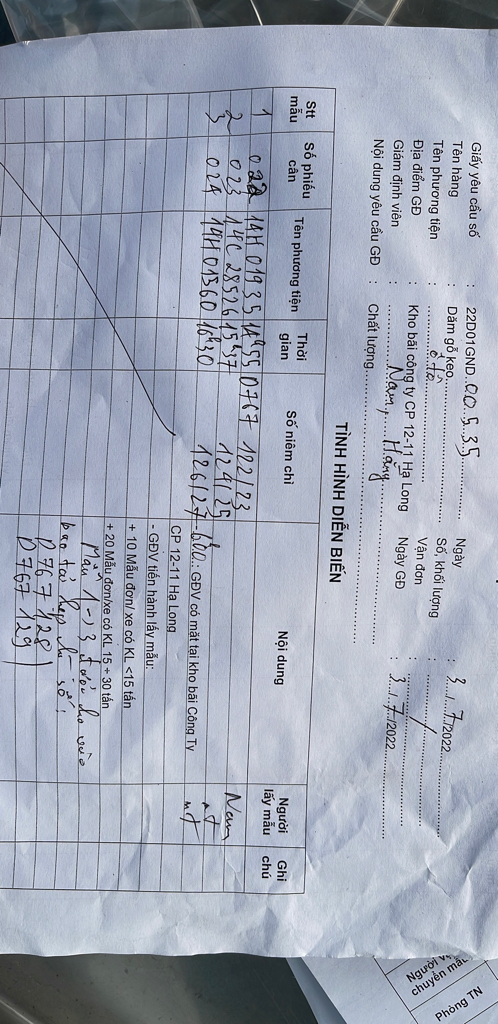 Giấy yêu cầu số : 22D01GND..00535 Ngày : 3./.7./2022
Tên hàng : Dăm gỗ keo Số, khối lượng :
Tên phương tiện : ô tô Vận đơn : /
Địa điểm GĐ : Kho bãi công ty CP 12-11 Hạ Long Ngày GĐ : 3./.7./2022
Giám định viên : Nam, Hằng
Nội dung yêu cầu GĐ : Chất lượng
TÌNH HÌNH DIỄN BIẾN
Stt mẫu Số phiếu cân Tên phương tiện Thời gian Số niêm chì Nội dung Người lấy mẫu Ghi chú
1 022 14H 01935 14h55 0767 122/23
2 023 14C 28526 15h37 124/25 Nam
3 024 14H 01360 16h30 126/27 GĐV có mặt tại kho bãi Công Ty nt
CP 12-11 Hạ Long nt
- GĐV tiến hành lấy mẫu:
+ 10 Mẫu đơn/ xe có KL <15 tấn
+ 20 Mẫu đơn/xe có KL 15 ÷ 30 tấn
Mẫu 1 -> 3 được cho vào
bao tải kẹp chì số:
0767 128
0767 129
Người
chuyển mẫu
Phòng TN